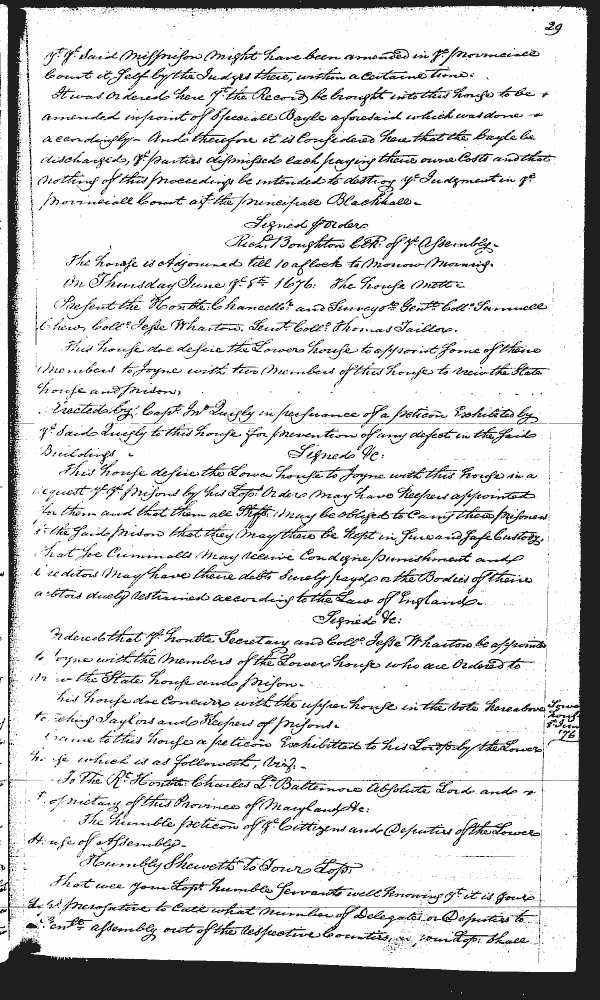 29
yt ye Said Misprison Might have been amended in ye Provinciall
Court it Self by the Judges there, within a certaine time.
It was Ordered here yt the Record be brought into this house to be
amended in point of Speciall Bayle aforesaid which was done
accordingly. And therefore it is Considered here that the Bayle be
discharged, ye Parties dismissed each paying there owne Costs and that
nothing of this Proceedings be intended to destroy ye Judgment in ye
Provinciall Court agt the principall Blackhall.
Signed p Order
Richd Boughton Clk of ye Assembly.
The house is Adjourned till 10 a Clock to Morrow Morning.
On Thursday June ye 8th 1676. The house Mett
Present the Honble Chancellr and Surveyr Genll Collo Samuell
Chew, Collo Jesse Wharton, Leiut Collo Thomas Taillor.
This house doe desire the Lower house to appoint some of theire
Members to Joyne with two Members of this house to view the State
house and Prison,
Erected by Capt Jno Quigly in persuance of a peticon Exhibited by
ye Said Quigly to this house for prevention of any defect in the Said
Buildings
Signed &c:
This house desire the Lower house to Joyne with this house in a
request yt ye Prisons by his Lops Order May have Keepers appointed
for them and that them all May be obliged to Carry there Prisoners
the Said prison that they May there be Kept in Sure and Safe Custody
that Soe Criminalls May receive Condigne Punishment and
Creditors May have there debts Surely payd or the Bodies of theire
debtors duely restrained according to the Law of England.
Signed &c:
Ordered that ye honble Secretary and Collo Jesse Wharton be appointed
to Joyne with the Members of the Lower house who are Ordered to
view the State house and prison.
This house doe Concurr with the upper house in the Vote hereabove
touching Jaylors and Keepers of prisons.
Lower
house
8 June
'76
Came to this house a peticon Exhibitted to his Lordsp by the Lower
House which is as followeth, Vizt.
To The Rt Honble Charles Ld Baltemore Absolute Lord and
Propriatary of this Province of Maryland &c:
The humble peticon of ye Cittizens and Deputies of the Lower
House of Assembly.
Humbly Sheweth to Your Lopp
That wee your Lopps humble Servants well knowing yt it is your
Prerogative to Call what number of Delegates or Deputies to
assembly out of the respective Counties, as your Lopp Shall